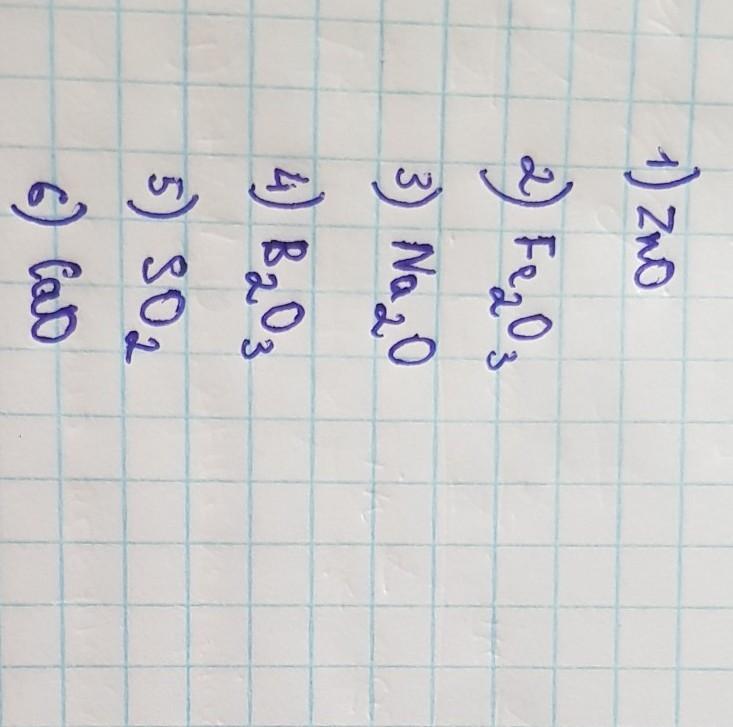 1) ZnO
2) Fe₂O₃
3) Na₂O
4) B₂O₃
5) SO₂
6) CaO